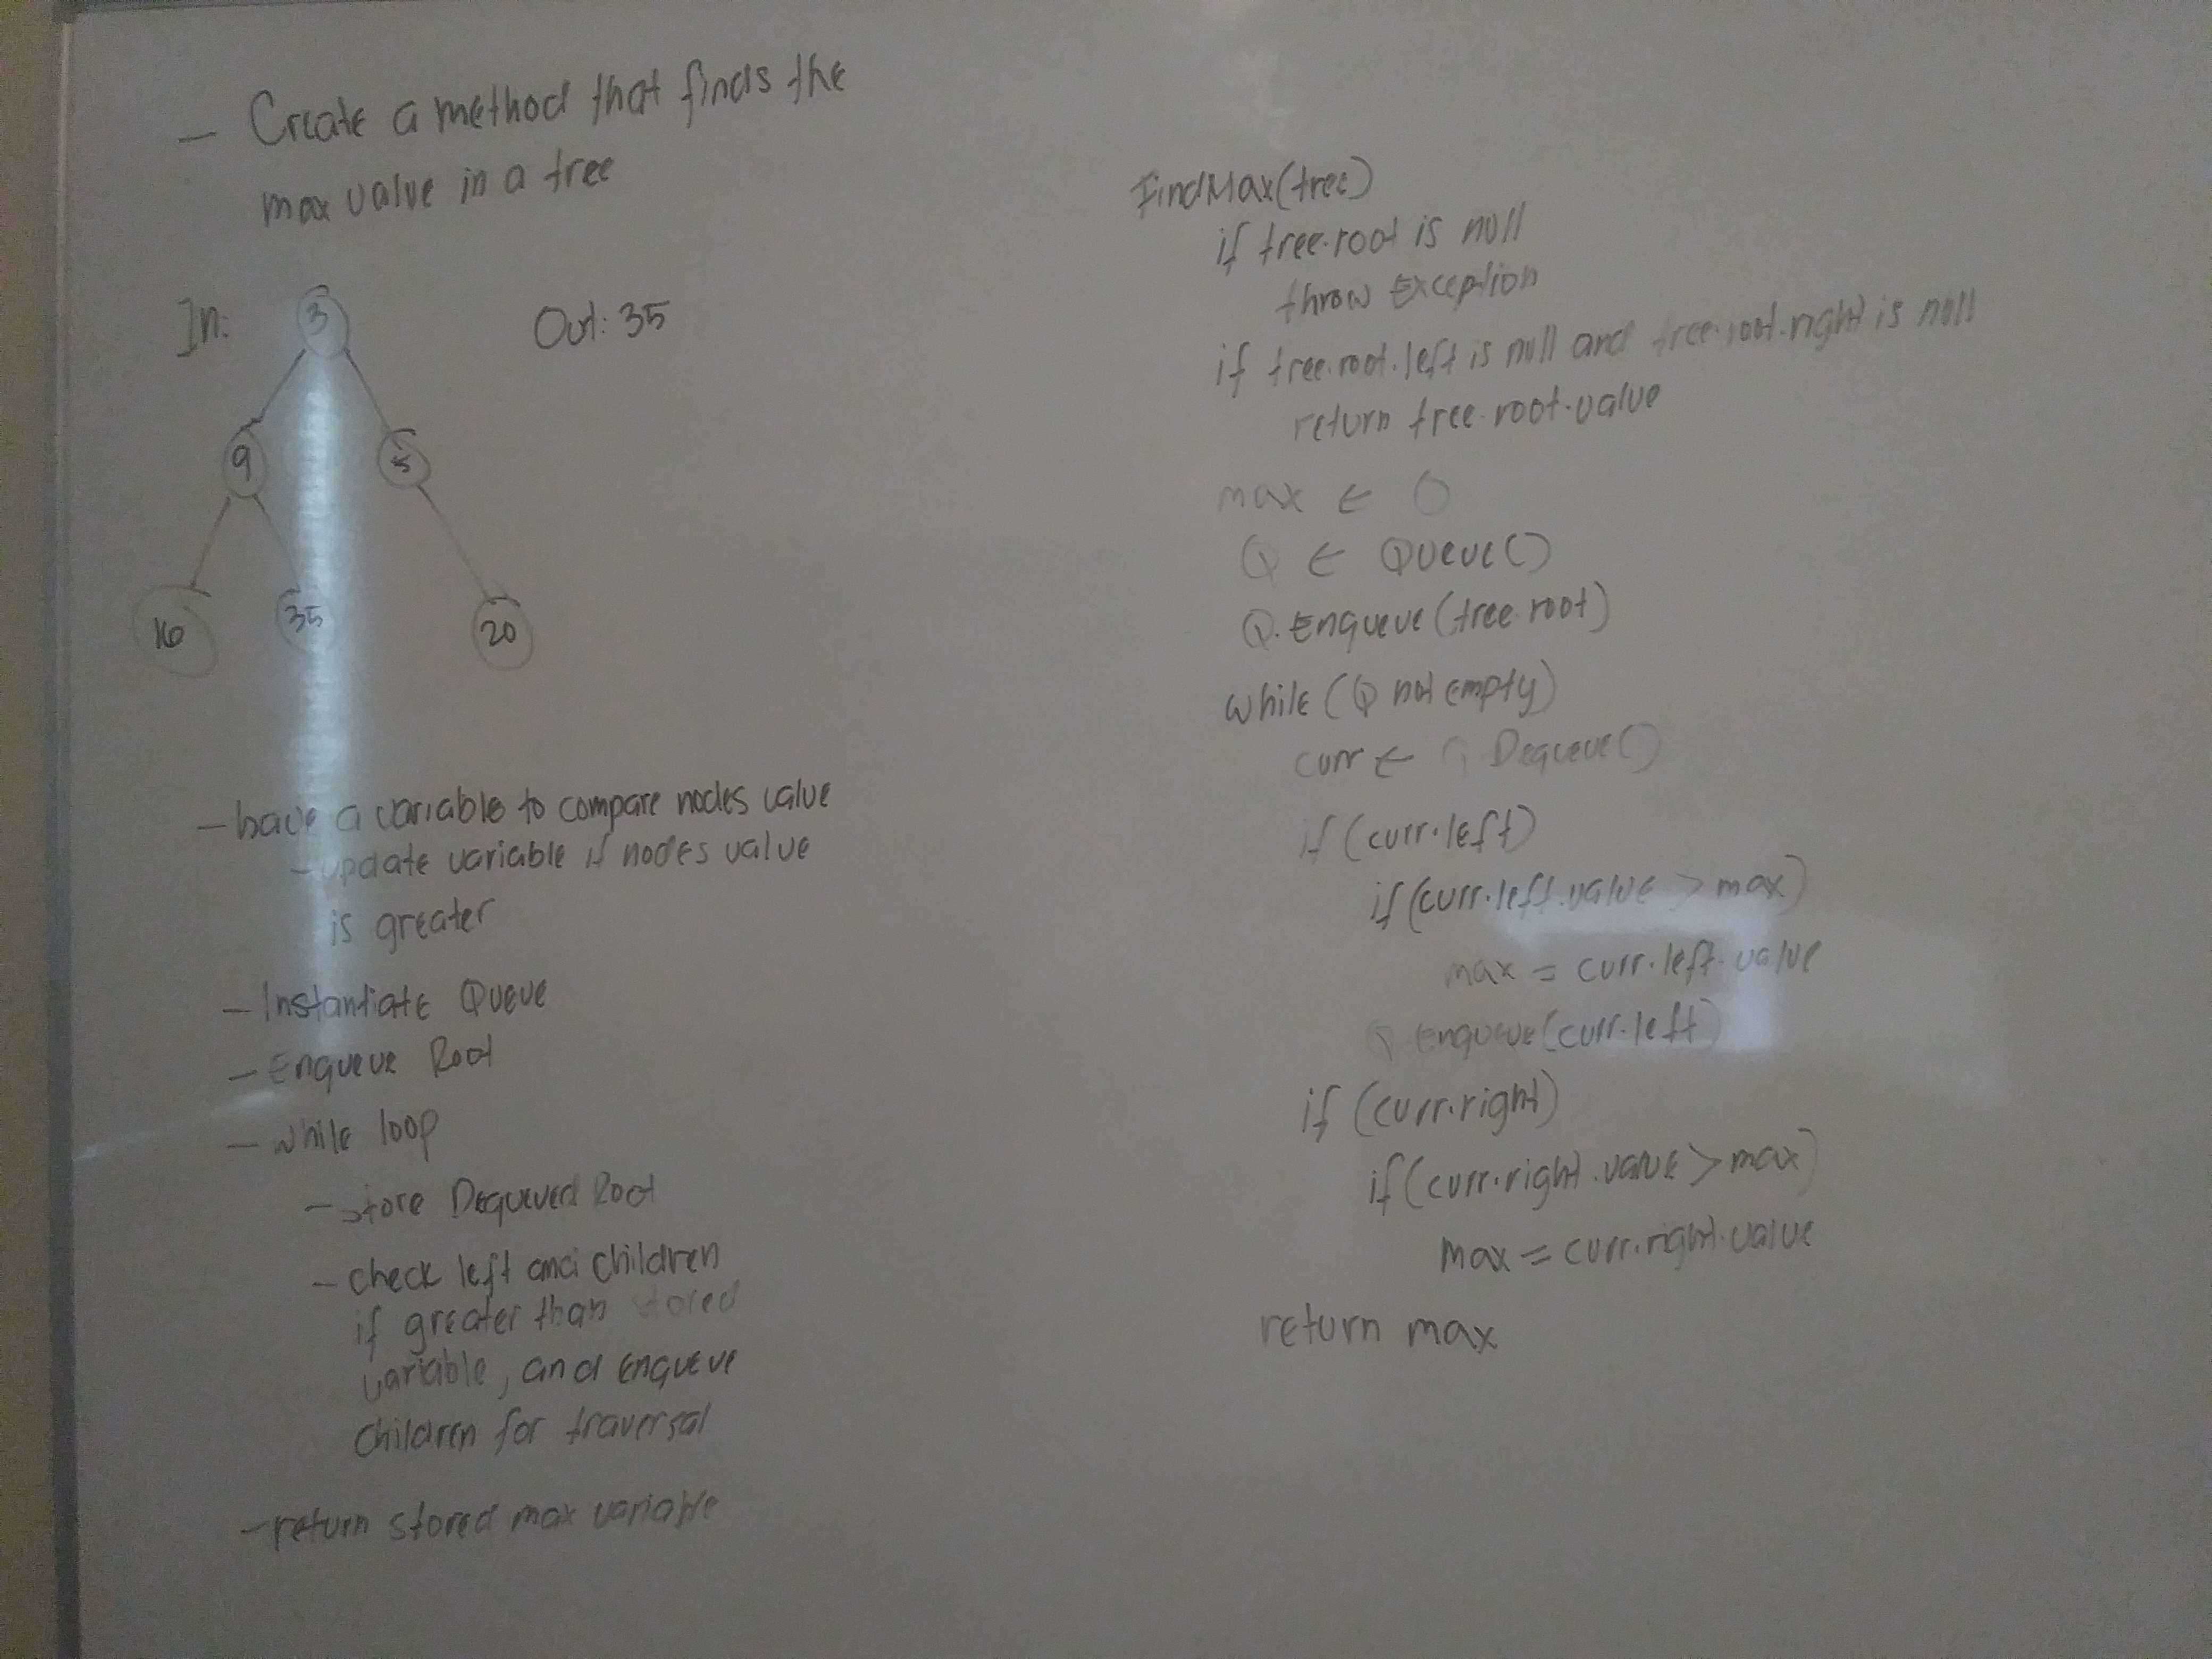 - Create a method that finds the
max value in a tree
In:
Out: 35
3
9
5
16
35
20
- have a variable to compare nodes value
- update variable if nodes value
is greater
- Instantiate Queue
- Enqueue Root
- while loop
- store Dequeued Root
- check left and children
if greater than stored
variable, and enqueue
children for traversal
- return stored max variable
FindMax(tree)
if tree.root is null
throw Exception
if tree.root.left is null and tree.root.right is null
return tree.root.value
max ← 0
Q ← Queue()
Q.Enqueue(tree.root)
while (Q not empty)
curr ← Q Dequeue()
if (curr.left)
if (curr.left.value > max)
max = curr.left.value
Q enqueue(curr.left)
if (curr.right)
if (curr.right.value > max)
max = curr.right.value
return max